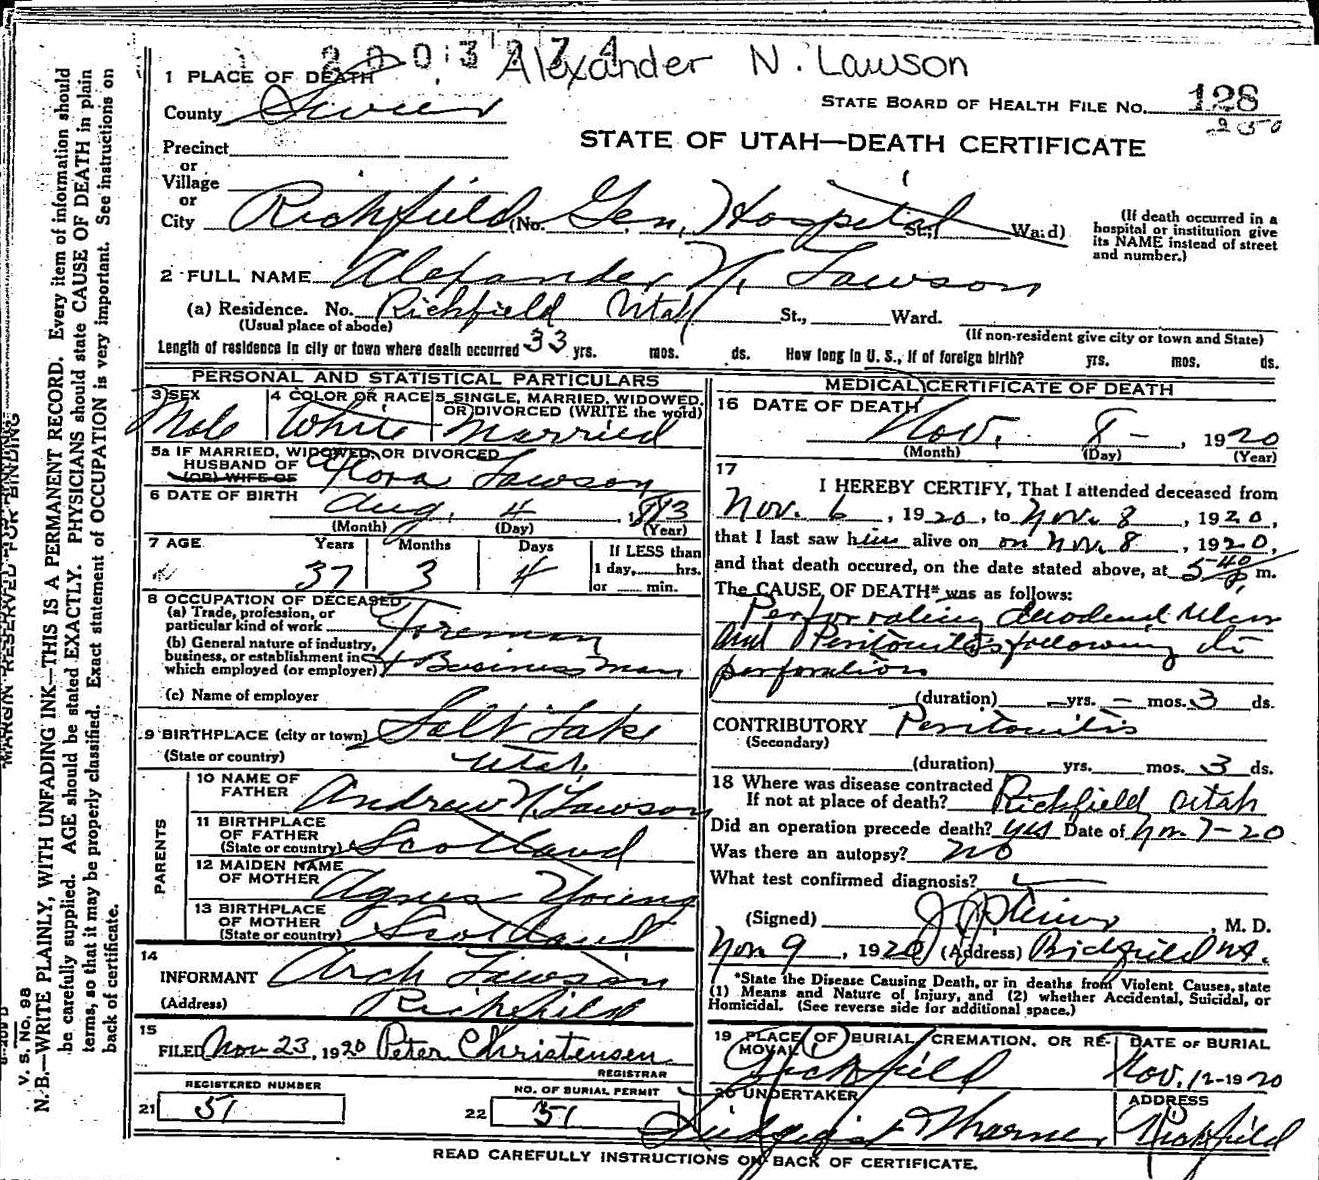 2003274 Alexander N. Lawson
1 PLACE OF DEATH
County Sevier
STATE BOARD OF HEALTH FILE NO. 128
250
STATE OF UTAH—DEATH CERTIFICATE
Precinct
or
Village
or
City Richfield (No. Gen. Hospital St., Ward)
(If death occurred in a
hospital or institution give
its NAME instead of street
and number.)
2 FULL NAME Alexander N. Lawson
(a) Residence. No. Richfield Utah St., Ward.
(Usual place of abode) (If non-resident give city or town and State)
Length of residence in city or town where death occurred 33 yrs. mos. ds. How long in U. S., if of foreign birth? yrs. mos. ds.
PERSONAL AND STATISTICAL PARTICULARS
3 SEX Male
4 COLOR OR RACE White
5 SINGLE, MARRIED, WIDOWED,
OR DIVORCED (WRITE the word)
Married
5a IF MARRIED, WIDOWED, OR DIVORCED
HUSBAND OF Flora Lawson
(OR) WIFE OF
6 DATE OF BIRTH Aug. 4, 1883
(Month) (Day) (Year)
7 AGE Years Months Days If LESS than
37 3 4 1 day, hrs.
or min.
8 OCCUPATION OF DECEASED
(a) Trade, profession, or
particular kind of work Foreman
(b) General nature of industry,
business, or establishment in
which employed (or employer) & Business man
(c) Name of employer
9 BIRTHPLACE (city or town) Salt Lake
(State or country) Utah
PARENTS
10 NAME OF
FATHER Andrew N. Lawson
11 BIRTHPLACE
OF FATHER
(State or country) Scotland
12 MAIDEN NAME
OF MOTHER Agnes Young
13 BIRTHPLACE
OF MOTHER
(State or country) Scotland
14
INFORMANT Arch Lawson
(Address) Richfield
15
FILED Nov 23, 1920 Peter Christensen
REGISTRAR
REGISTERED NUMBER
21 51
NO. OF BURIAL PERMIT
22 51
MEDICAL CERTIFICATE OF DEATH
16 DATE OF DEATH
Nov. 8 -, 1920
(Month) (Day) (Year)
17
I HEREBY CERTIFY, That I attended deceased from
Nov. 6, 1920, to Nov. 8, 1920,
that I last saw him alive on on Nov. 8, 1920,
and that death occured, on the date stated above, at 5-40 p m.
The CAUSE OF DEATH* was as follows:
Perforating duodenal Ulcer
and Peritonitis following
perforation
(duration) — yrs. — mos. 3 ds.
CONTRIBUTORY Peritonitis
(Secondary)
(duration) yrs. mos. 3 ds.
18 Where was disease contracted
If not at place of death? Richfield Utah
Did an operation precede death? yes Date of Nov. 7-20
Was there an autopsy? no
What test confirmed diagnosis?
(Signed) , M. D.
Nov 9, 1920 (Address) Richfield Ut.
*State the Disease Causing Death, or in deaths from Violent Causes, state
(1) Means and Nature of Injury, and (2) whether Accidental, Suicidal, or
Homicidal. (See reverse side for additional space.)
19 PLACE OF BURIAL, CREMATION, OR RE-
MOVAL
Richfield
DATE OF BURIAL
Nov. 12-1920
20 UNDERTAKER
ADDRESS
Richfield
READ CAREFULLY INSTRUCTIONS ON BACK OF CERTIFICATE.
MARGIN RESERVED FOR BINDING
V. S. No. 98
N. B.—WRITE PLAINLY, WITH UNFADING INK—THIS IS A PERMANENT RECORD. Every item of information should
be carefully supplied. AGE should be stated EXACTLY. PHYSICIANS should state CAUSE OF DEATH in plain
terms, so that it may be properly classified. Exact statement of OCCUPATION is very important. See instructions on
back of certificate.